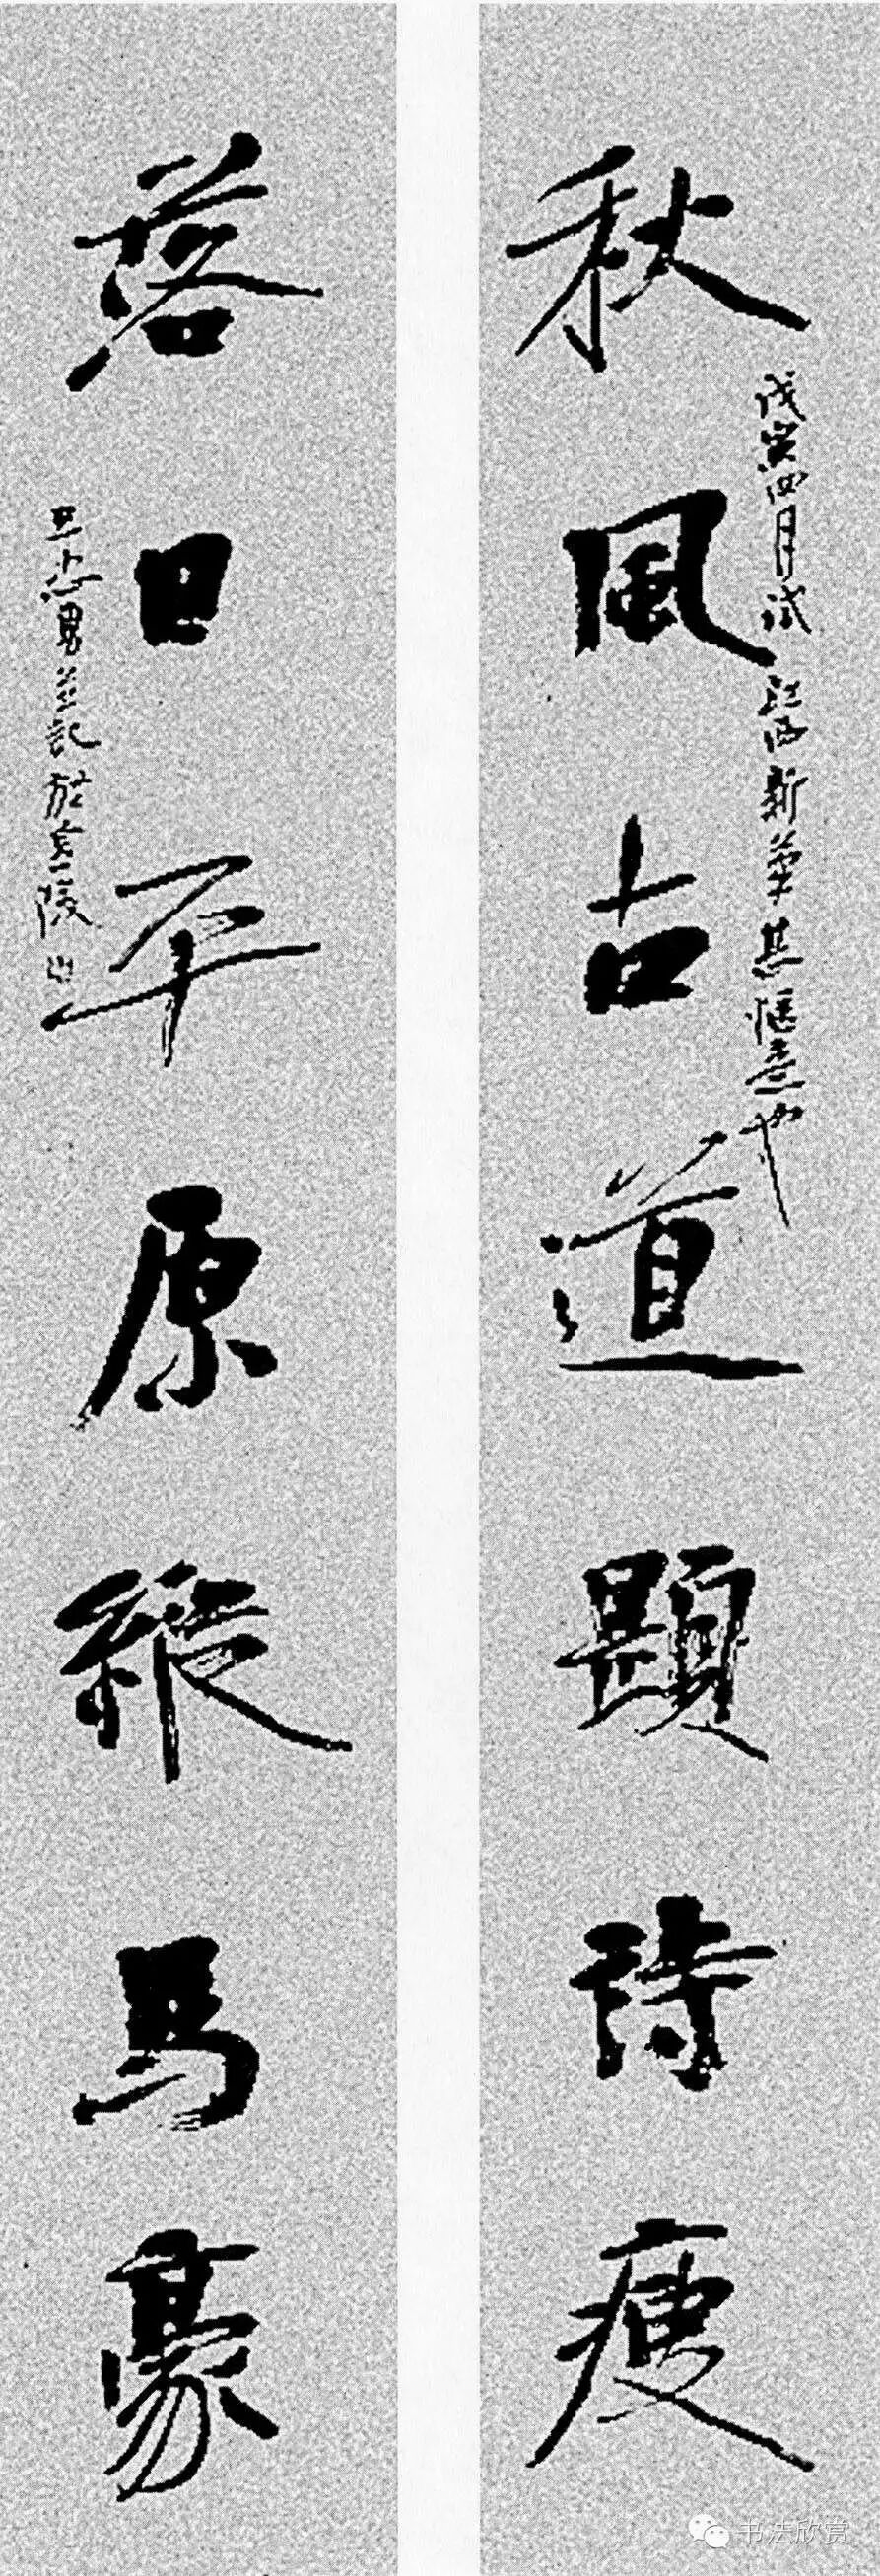 秋風古道題詩瘦
戊寅四月試江西新筆甚恆意也
落日平原縱馬豪
於金陵
书法欣赏